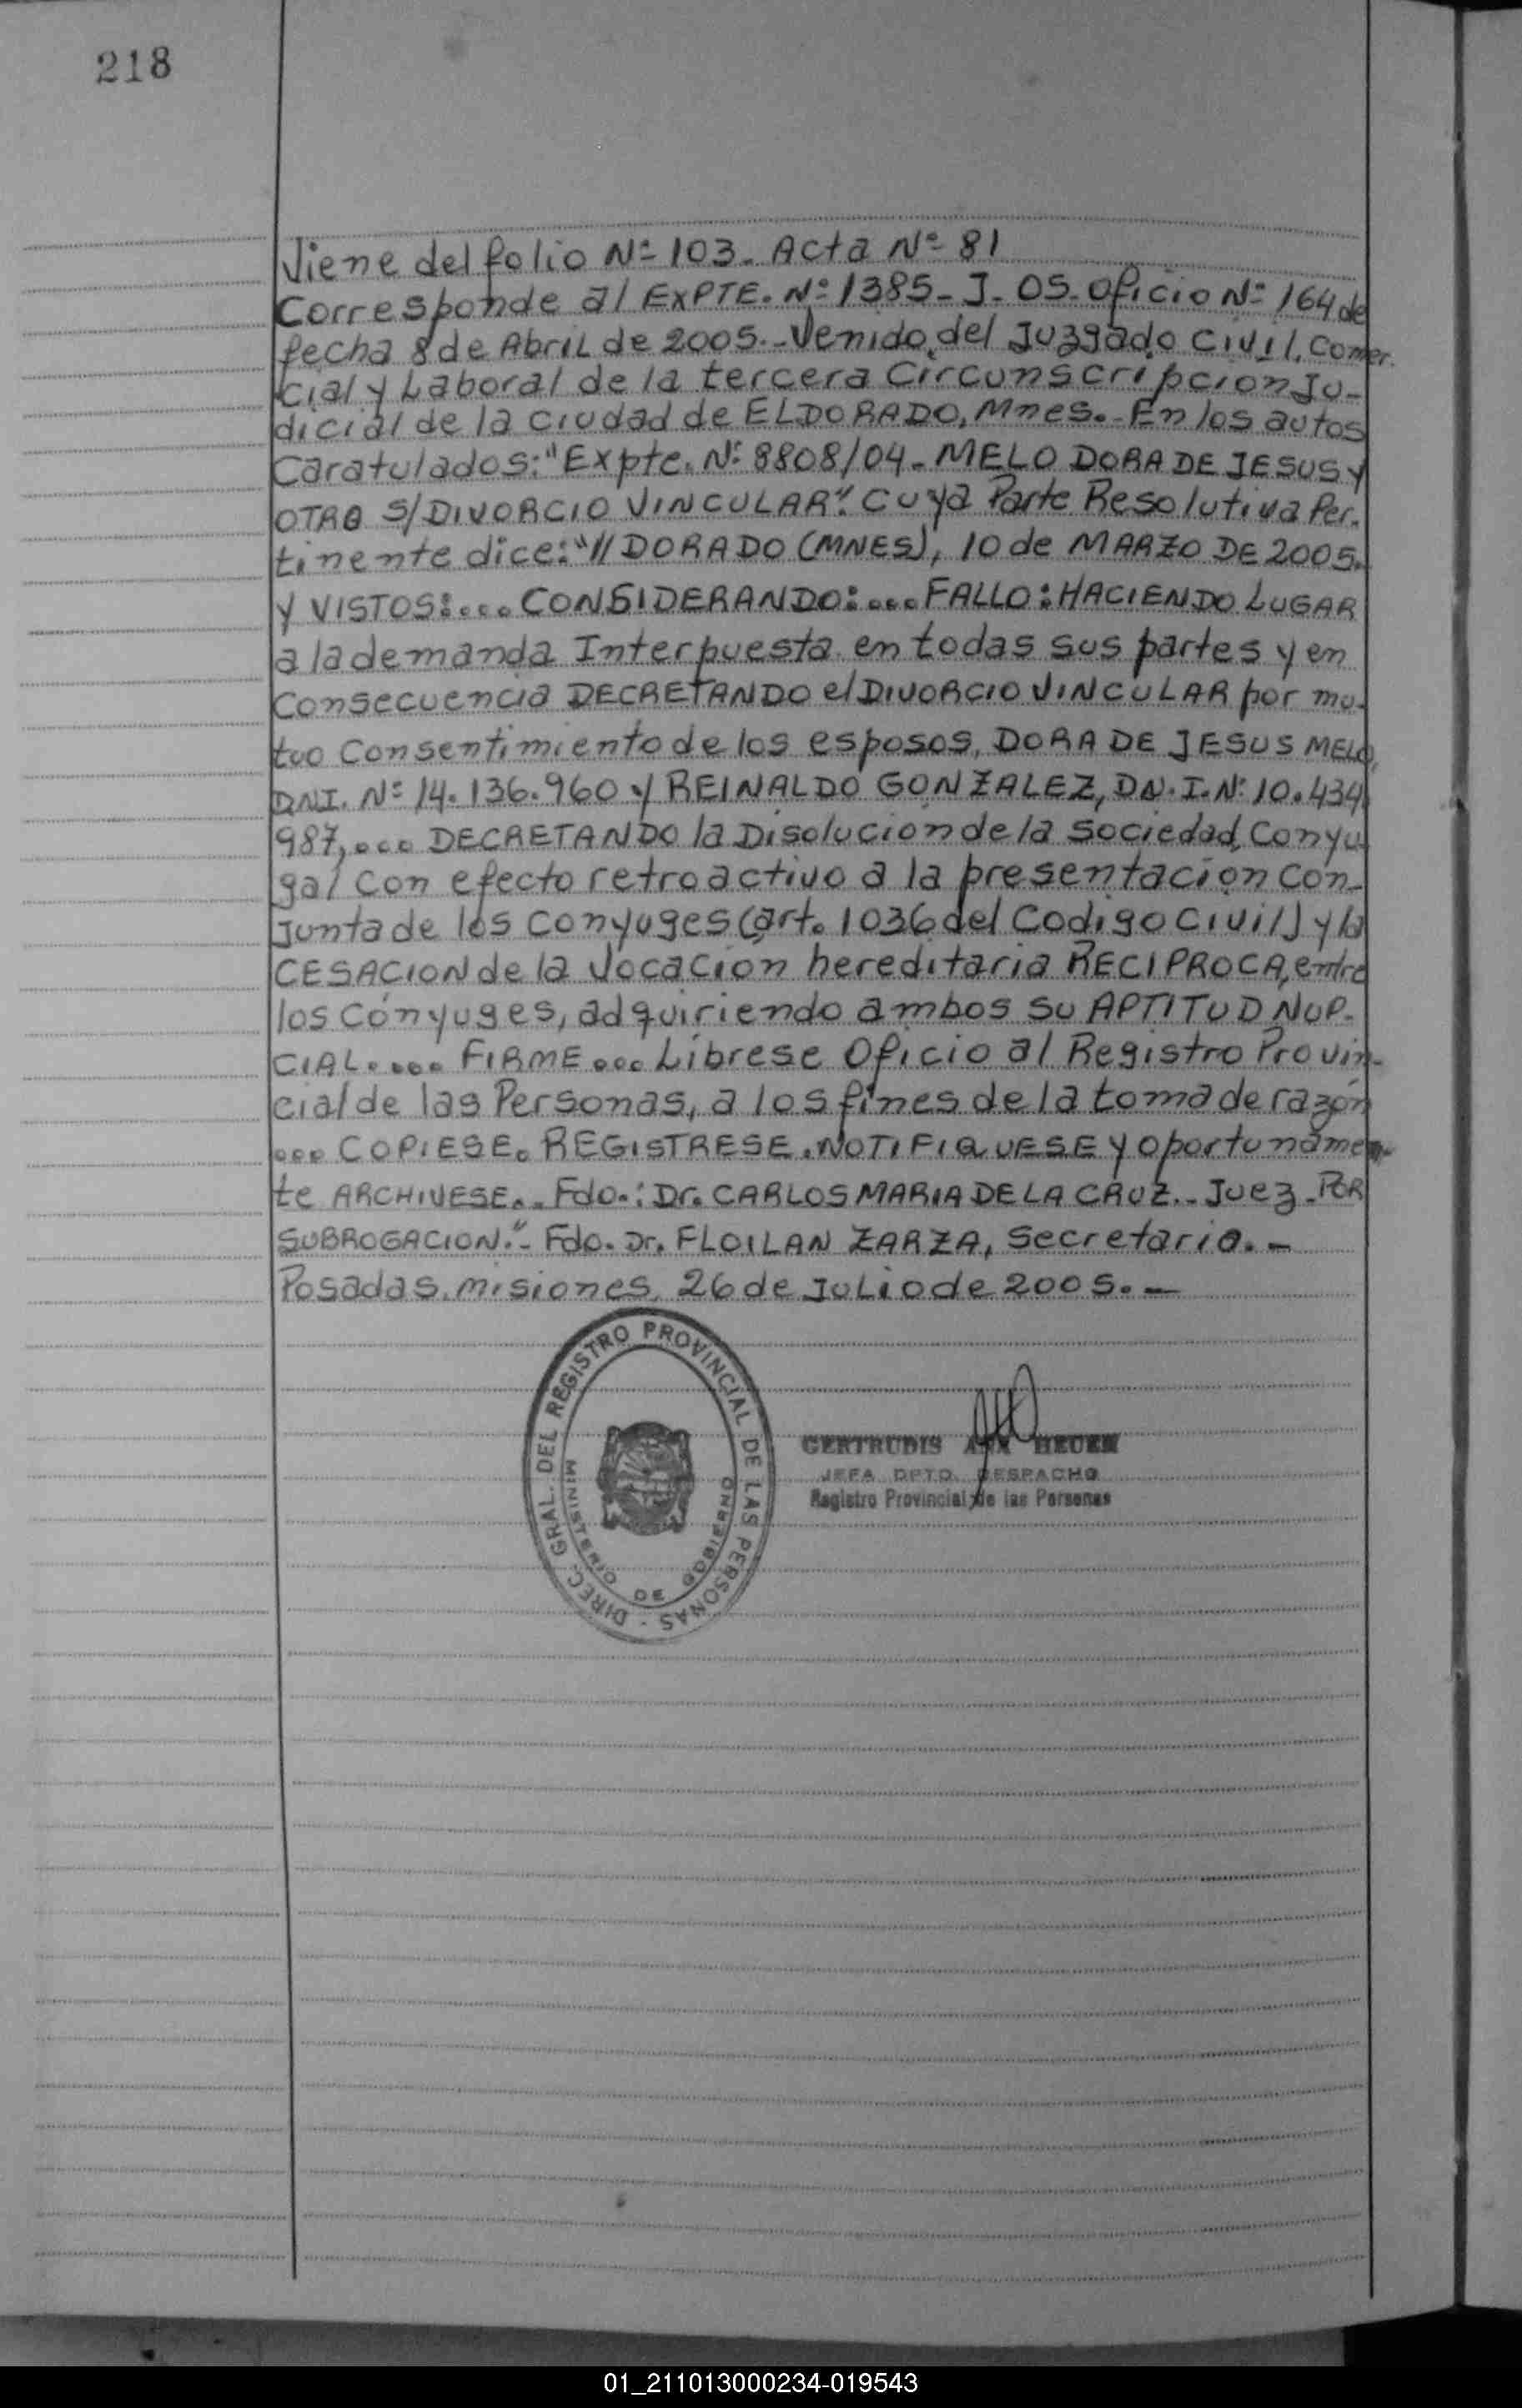 218
Viene del folio Nº 103. Acta Nº 81
Corresponde al EXPTE. Nº 1385 - J - 05. Oficio Nº 164 de
fecha 8 de Abril de 2005.- Venido del Juzgado Civil, Comer-
cial y Laboral de la tercera Circunscripcion Ju-
dicial de la ciudad de ELDORADO, Mnes.- En los autos
Caratulados: "Expte. Nº 8808/04 - MELO DORA DE JESUS Y
OTRO S/ DIVORCIO VINCULAR". Cuya Parte Resolutiva Per-
tinente dice: "// DORADO (MNES), 10 de MARZO DE 2005.
Y VISTOS:... CONSIDERANDO:... FALLO: HACIENDO LUGAR
a la demanda Interpuesta en todas sus partes y en
Consecuencia DECRETANDO el DIVORCIO VINCULAR por mu-
tuo Consentimiento de los esposos, DORA DE JESUS MELO,
DNI. Nº 14.136.960 y REINALDO GONZALEZ, DN.I. Nº 10.434.
987,... DECRETANDO la Disolucion de la Sociedad Conyu-
gal con efecto retroactivo a la presentación con-
Junta de los conyuges (art. 1036 del Codigo Civil) y la
CESACION de la Vocación hereditaria RECIPROCA, entre
los Cónyuges, adquiriendo ambos su APTITUD NUP-
CIAL.... FIRME... Líbrese Oficio al Registro Provin-
cial de las Personas, a los fines de la toma de razón
... COPIESE. REGISTRESE. NOTIFIQUESE y oportunamen-
te ARCHIVESE.- Fdo.: Dr. CARLOS MARIA DE LA CRUZ.- Juez - POR
SUBROGACION."- Fdo. Dr. FLOILAN ZARZA, Secretario.-
Posadas, misiones, 26 de Julio de 2005.-
DIREC. GRAL. DEL REGISTRO PROVINCIAL DE LAS PERSONAS -
MINISTERIO DE GOBIERNO
GERTRUDIS ANA
JEFA DPTO. DESPACHO
Registro Provincial de las Personas
01_211013000234-019543